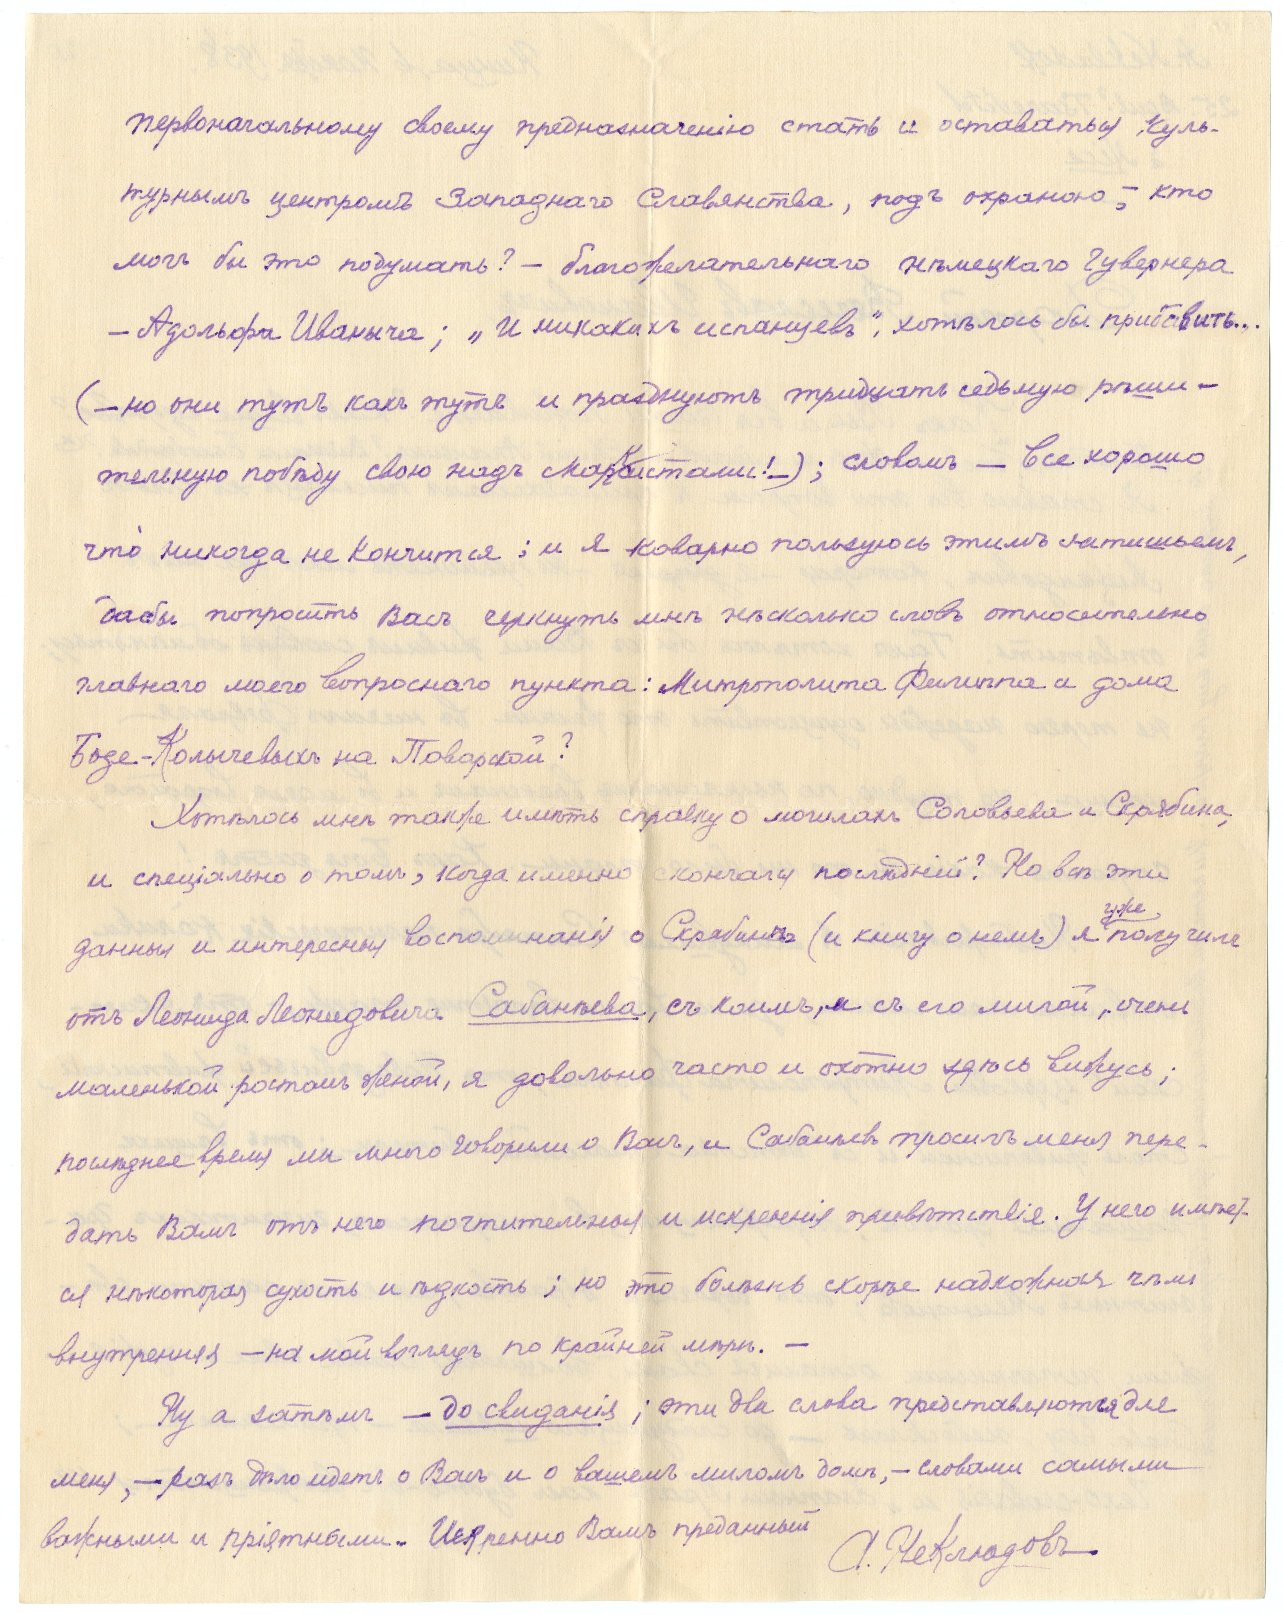 первоначальному своему предназначенію стать и оставаться куль-
турнымъ центромъ Западнаго Славянства, подъ охраною, – кто
могъ бы это подумать? – благожелательнаго нѣмецкаго гувернера
– Адольфа Иваныча; „И никакихъ испанцевъ“, хотѣлось бы прибавить...
(– но они тутъ какъ тутъ и празднуютъ тридцать седьмую рѣши-
тельную побѣду свою надъ марксистами! –); словомъ – все хорошо
что̀ никогда не кончится; и я коварно пользуюсь этимъ затишьемъ,
дабы попросить Васъ черкнуть мнѣ нѣсколько словъ относительно
главнаго моего вопроснаго пункта: Митрополита Филиппа и дома
Боде-Колычевыхъ на Поварской?
Хотѣлось мнѣ также имѣть справку о могилахъ Соловьева и Скрябина,
и спеціально о томъ, когда именно скончался послѣдній? Но всѣ эти
данныя и интересныя воспоминанія о Скрябинѣ (и книгу о немъ) я уже получилъ
отъ Леонида Леонидовича Сабанѣева, съ коимъ, и съ его милой, очень
маленькой ростомъ женой, я довольно часто и охотно здѣсь вижусь;
послѣднее время мы много говорили о Васъ, и Сабанѣевъ просилъ меня пере-
дать Вамъ отъ него почтительныя и искреннія привѣтствія. У него имѣет-
ся нѣкоторая сухость и ѣдкость; но это болѣзнь скорѣе надкожная чѣмъ
внутренняя – на мой взглядъ по крайней мѣрѣ. –
Ну а затѣмъ – до свиданія; эти два слова представляются для
меня, – разъ дѣло идетъ о Васъ и о вашемъ миломъ домѣ, – словами самыми
важными и пріятными. Искренно Вамъ преданный
А. Неклюдовъ.